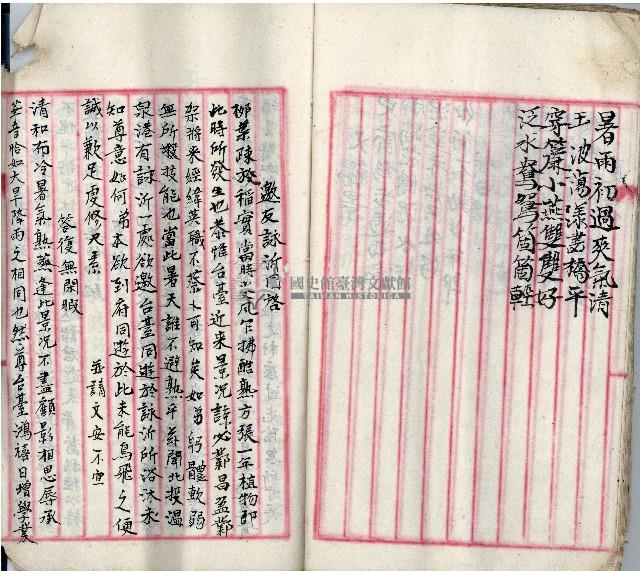 暑雨初過爽氣清
玉波蕩漾畫橋平
穿簾小燕雙雙好
泛水鴛鴦箇箇輕
邀友詠沂啓
柳葉陳發稻實當時炎風乍拂酷熱方張一年植物即
此時所發生也恭惟台臺近来景况諒必鄴昌盈鄴
架將来經緯英職不落卜可知矣如弟躬體軟弱
無所嫺技能也當此暑天誰不避熟乎茲聞北投温
泉港有詠沂一處欲邀台臺同遊於詠沂所浴沐未
知尊意如何弟本欲到府同遊於此未能鳥飛之便
誠以歉足虔修尺素
並請文安不宣
答復無閑暇
清和布冷暑氣熟蒸逢此景况不盡顧影相思辱承
芸音恰如大旱降雨之相同也然尊台臺鴻禧日增學業
國史館臺灣文獻館
TAIWAN HISTORICA